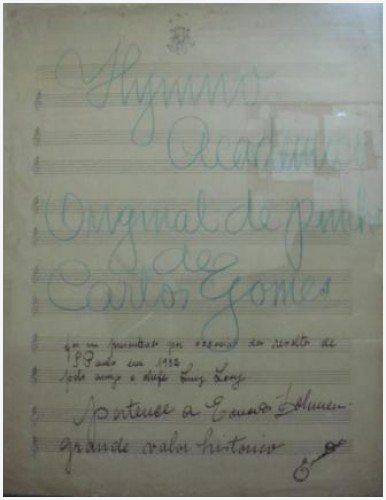 Hymno
Academico
Original de punho
de
Carlos Gomes
foi me presenteado por ocasião da revolta de
S. Paulo em 1932
pelo amigo e chefe Luiz Levy
pertence a Eduardo
grande valor historico